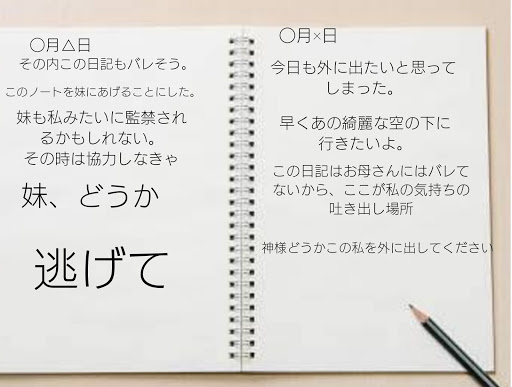 〇月△日
その内この日記もバレそう。
このノートを妹にあげることにした。
妹も私みたいに監禁され
るかもしれない。
その時は協力しなきゃ
妹、どうか
逃げて
〇月×日
今日も外に出たいと思って
しまった。
早くあの綺麗な空の下に
行きたいよ。
この日記はお母さんにはバレて
ないから、ここが私の気持ちの
吐き出し場所
神様どうかこの私を外に出してください